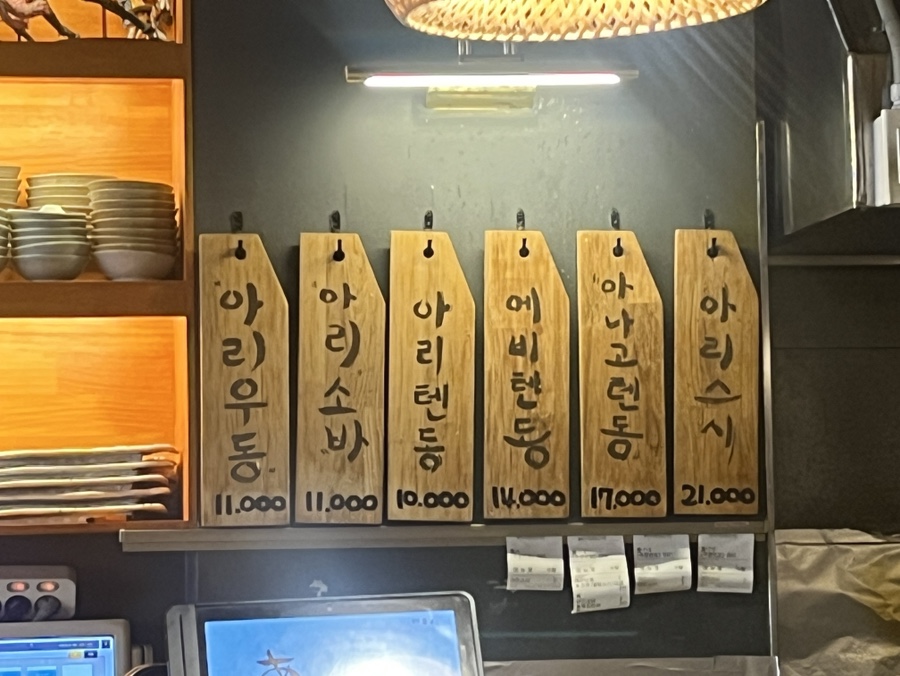 아리우동
11.000
아리소바
11.000
아리텐동
10.000
에비텐동
14.000
아나고텐동
17.000
아리스시
21.000